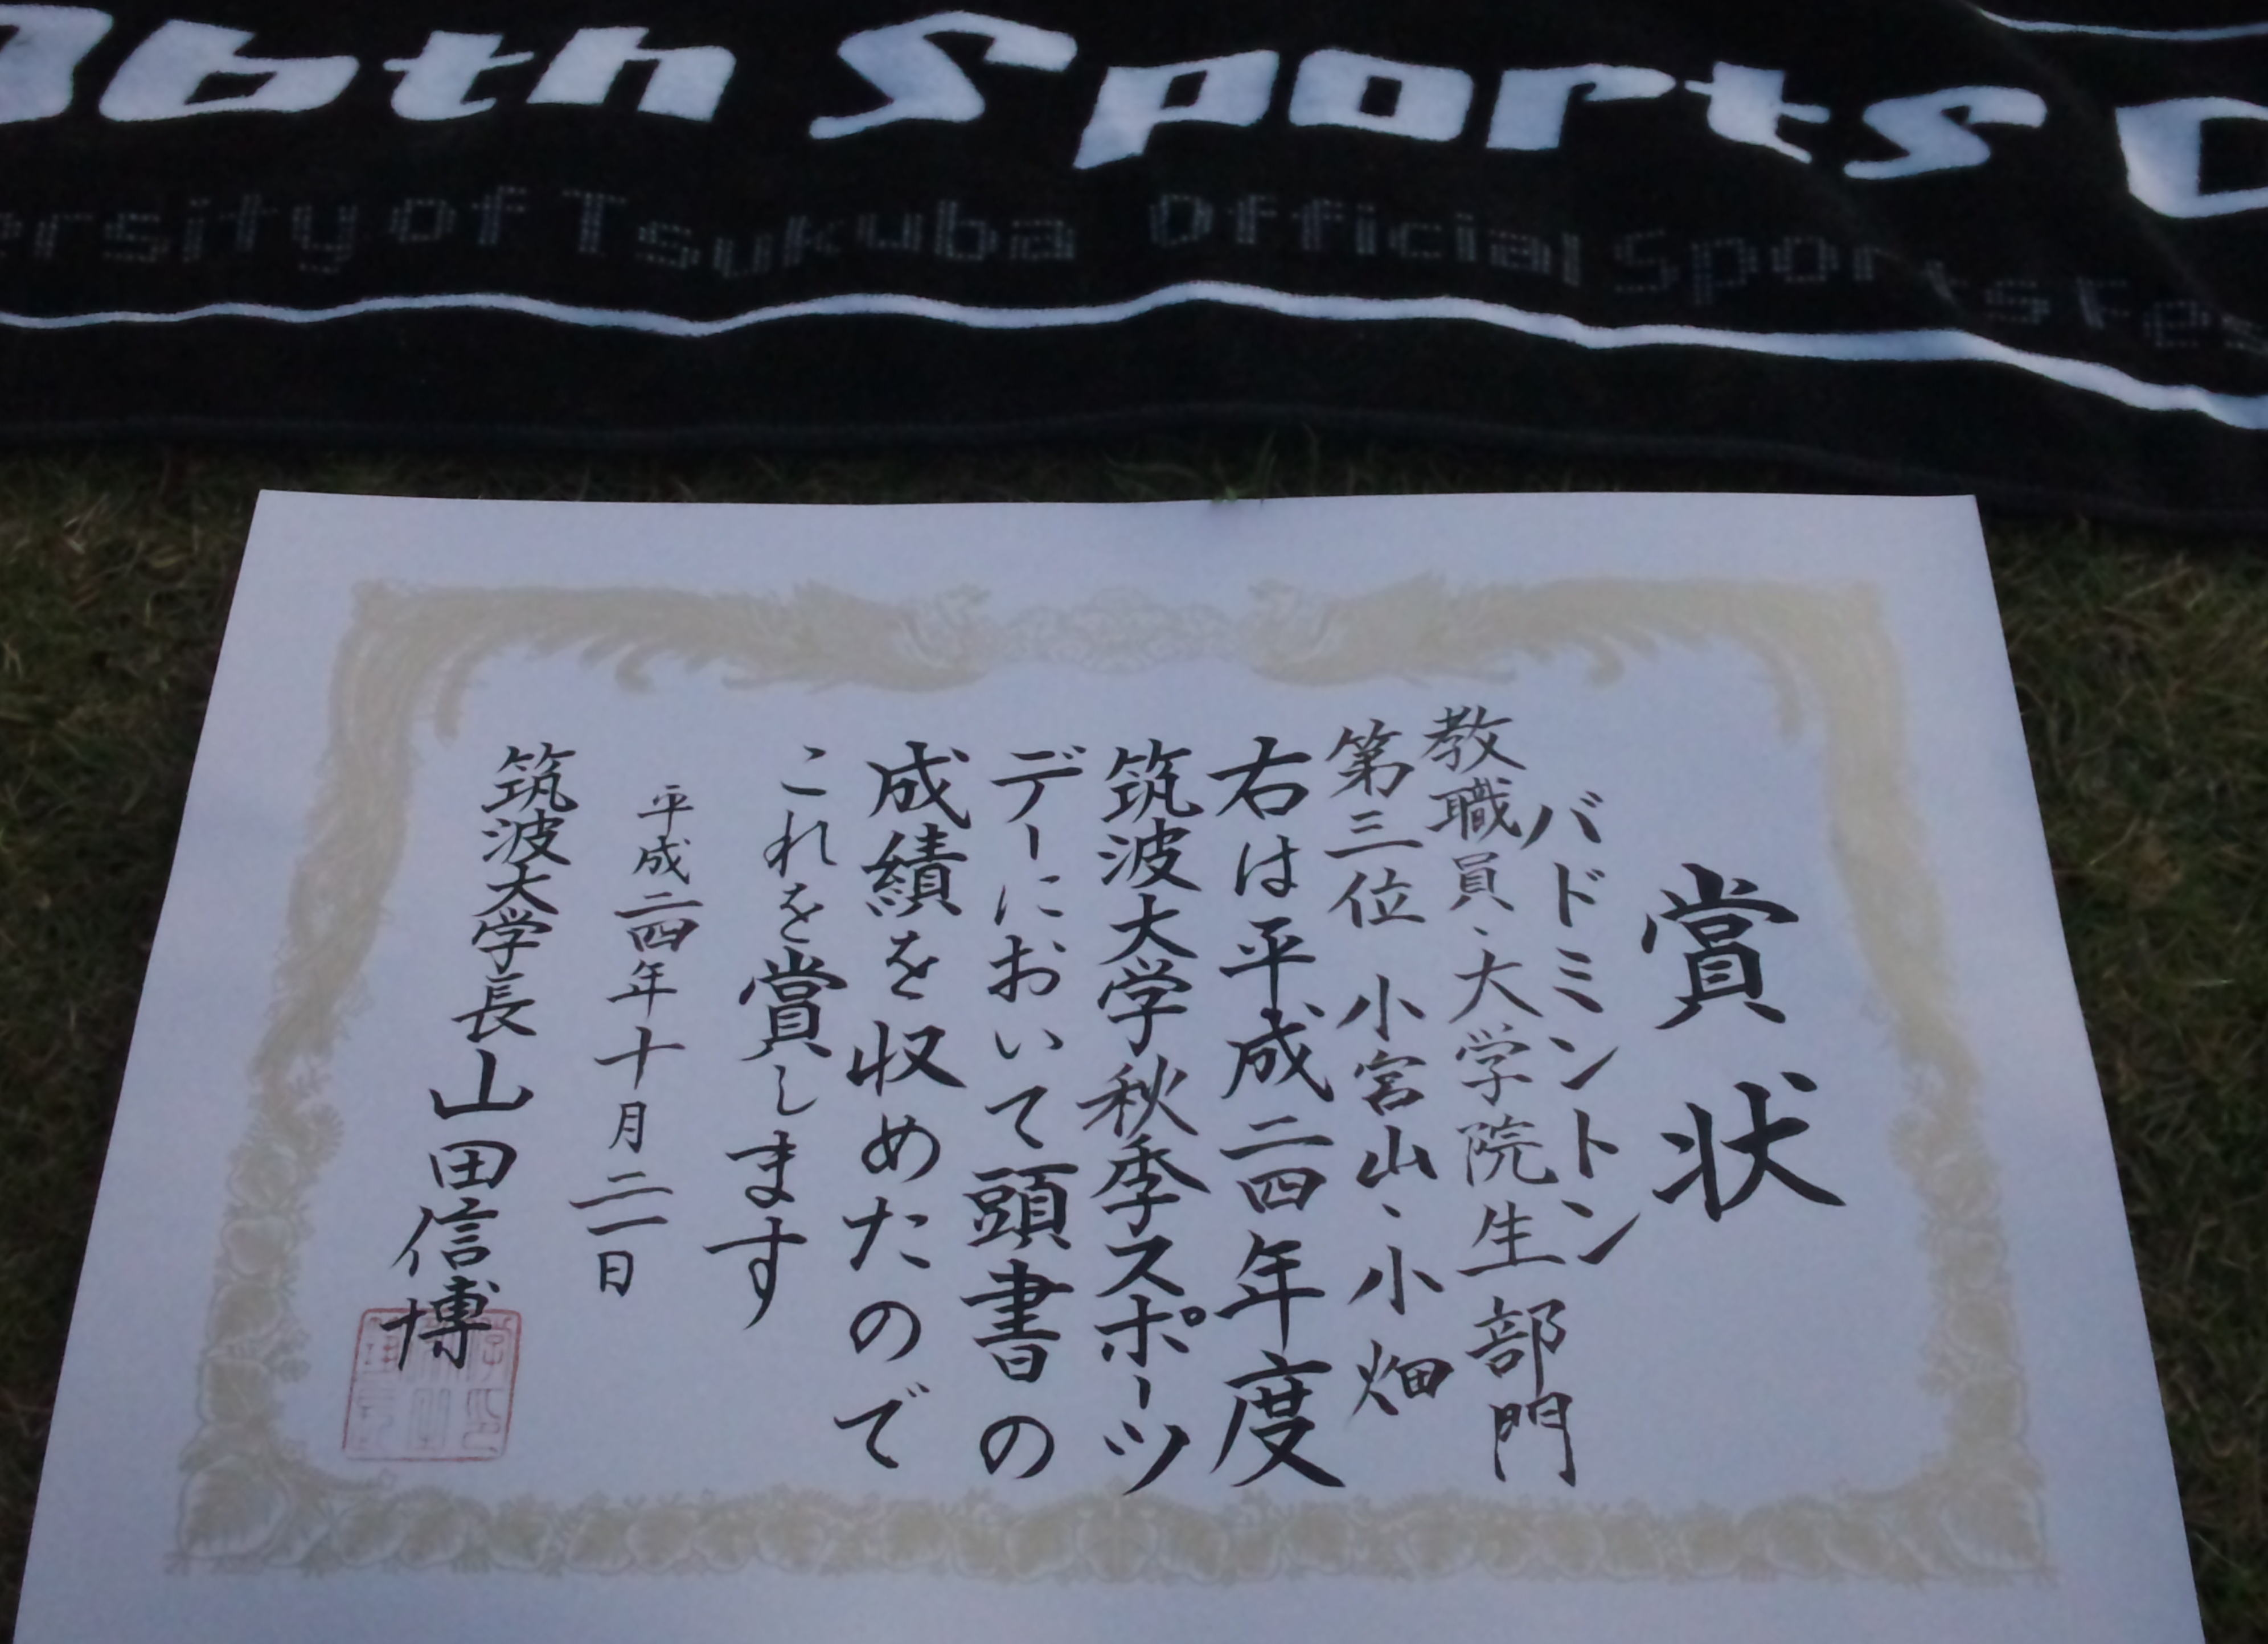 6th Sports D
ersity of Tsukuba Official Sports Fes
賞状
バドミントン
教職員、大学院生部門
第三位 小宮山、小畑
右は平成二四年度
筑波大学秋季スポーツ
デーにおいて頭書の
成績を収めたので
これを賞します
平成二四年十月二一日
筑波大学長山田信博